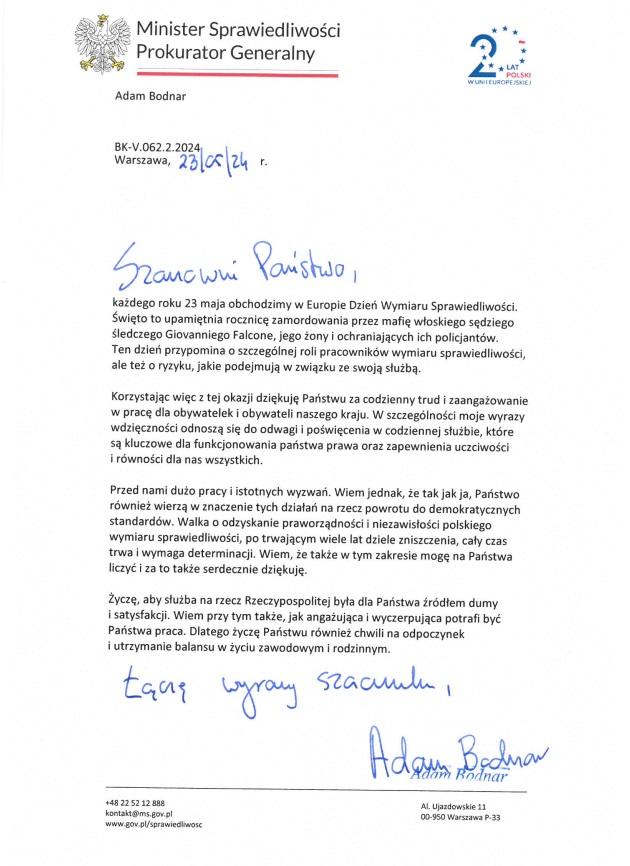 Minister Sprawiedliwości
Prokurator Generalny
20 LAT
POLSKI
W UNII EUROPEJSKIEJ
Adam Bodnar
BK-V.062.2.2024
Warszawa, 23/05/24 r.
Szanowni Państwo,
każdego roku 23 maja obchodzimy w Europie Dzień Wymiaru Sprawiedliwości.
Święto to upamiętnia rocznicę zamordowania przez mafię włoskiego sędziego
śledczego Giovanniego Falcone, jego żony i ochraniających ich policjantów.
Ten dzień przypomina o szczególnej roli pracowników wymiaru sprawiedliwości,
ale też o ryzyku, jakie podejmują w związku ze swoją służbą.
Korzystając więc z tej okazji dziękuję Państwu za codzienny trud i zaangażowanie
w pracę dla obywatelek i obywateli naszego kraju. W szczególności moje wyrazy
wdzięczności odnoszą się do odwagi i poświęcenia w codziennej służbie, które
są kluczowe dla funkcjonowania państwa prawa oraz zapewnienia uczciwości
i równości dla nas wszystkich.
Przed nami dużo pracy i istotnych wyzwań. Wiem jednak, że tak jak ja, Państwo
również wierzą w znaczenie tych działań na rzecz powrotu do demokratycznych
standardów. Walka o odzyskanie praworządności i niezawisłości polskiego
wymiaru sprawiedliwości, po trwającym wiele lat dziele zniszczenia, cały czas
trwa i wymaga determinacji. Wiem, że także w tym zakresie mogę na Państwa
liczyć i za to także serdecznie dziękuję.
Życzę, aby służba na rzecz Rzeczypospolitej była dla Państwa źródłem dumy
i satysfakcji. Wiem przy tym także, jak angażująca i wyczerpująca potrafi być
Państwa praca. Dlatego życzę Państwu również chwili na odpoczynek
i utrzymanie balansu w życiu zawodowym i rodzinnym.
Łączę wyrazy szacunku,
Adam Bodnar
Adam Bodnar
+48 22 52 12 888
kontakt@ms.gov.pl
www.gov.pl/sprawiedliwosc
Al. Ujazdowskie 11
00-950 Warszawa P-33